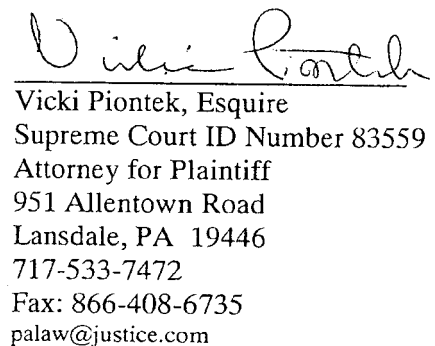 Vicki Piontek
Vicki Piontek, Esquire
Supreme Court ID Number 83559
Attorney for Plaintiff
951 Allentown Road
Lansdale, PA 19446
717-533-7472
Fax: 866-408-6735
palaw@justice.com